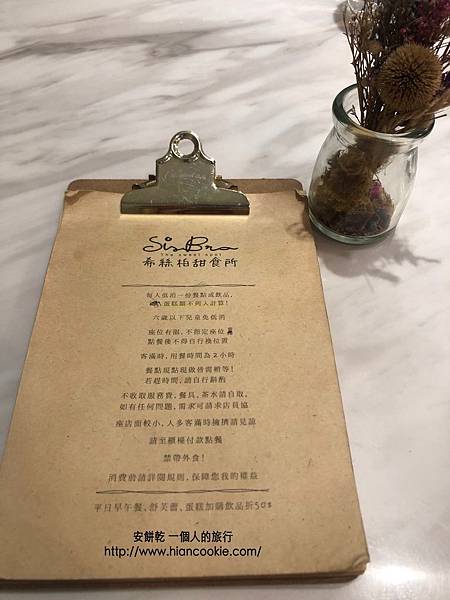 SisBro
The sweet spot
希絲柏甜食所
每人低消一份餐點或飲品,
蛋糕類不列入計算!
六歲以下兒童免低消
座位有限,不指定座位
點餐後不得自行換位置
客滿時,用餐時間為2小時
餐點現點現做皆需稍等!
若趕時間,請自行斟酌
不收取服務費,餐具,茶水請自取,
如有任何問題,需求可請求店員協
座店面較小,人多客滿時擁擠請見諒
請至櫃檯付款點餐
禁帶外食!
消費前請詳閱規則,保障您我的權益
平日早午餐、舒芙蕾、蛋糕加購飲品折50$
安餅乾 一個人的旅行
http://www.hiancookie.com/